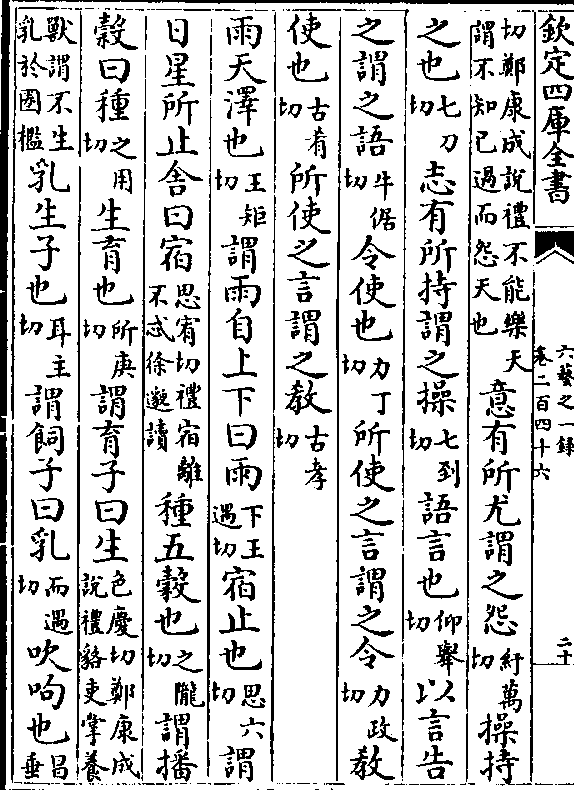 欽定四庫全書
六藝之一録
卷二百四十六
二十
切鄭康成說禮不能樂天謂不知已過而怨天也意有所尤謂之怨紆萬切操持
之也七刀切志有所持謂之操七到切語言也仰舉切以言告
之謂之語牛倨切令使也力丁切所使之言謂之令力政切教
使也古肴切所使之言謂之教古孝切
雨天澤也王矩切謂雨自上下曰雨下王遇切宿止也思六切謂
日星所止舍曰宿思宥切禮宿離不忒徐邈讀種五榖也之隴切謂播
榖曰種之用切生育也所庚切謂育子曰生色慶切鄭康成說禮貉吏掌養
獸謂不生乳於圈檻乳生子也耳主切謂飼子曰乳而遇切吹呴也昌垂